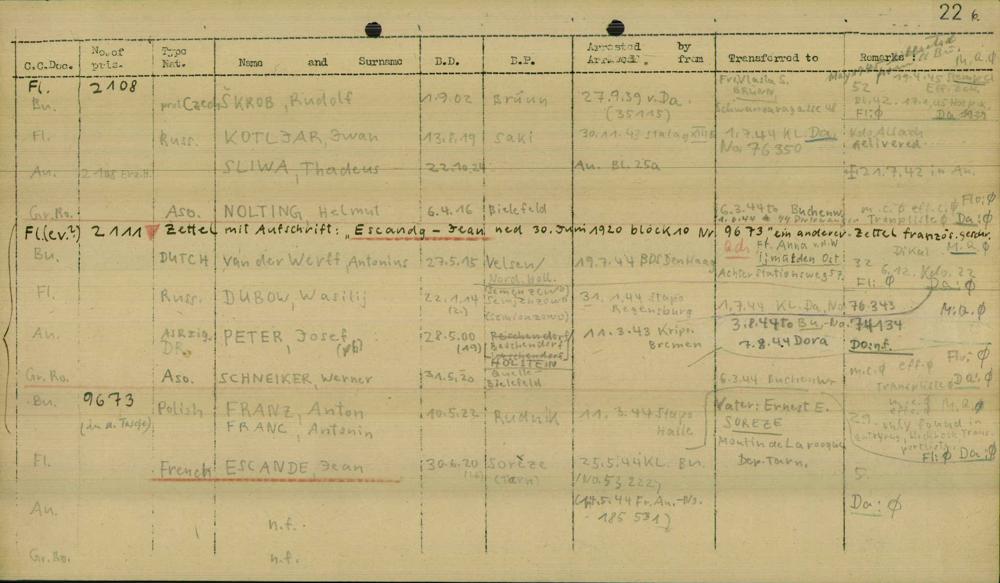 22
C.C.Doc. No. of pris. Type Nat. Name and Surname B.D. B.P. Arrested by Arrived from Transferred to Remarks:
Fl. 2108
Frl. Vlasta S.
BRÜNN
Bu. prot. Czech ŠKROB, Rudolf 1.9.02 Brünn 27.9.39 v. Da. Schwanzaragasse 48 52
(35115)
Fl: ϕ Da: 1939
Fl. Russ. KOTLJAR, Iwan 13.8.19 Saki 30.11.43 Stalag XIII B 1.7.44 KL. Da. Kdo. Allach
No. 76350 delivered.
An. 2108 Erz.H. SLIWA, Thadeus 22.10.24 An. Bl. 25a 21.7.42 in An.
Gr.Ro. Aso. NOLTING, Helmut 6.4.16 Bielefeld 6.3.44 to Buchenw. Flo: ϕ
Transpliste ϕ Da: ϕ
Fl. (ev.?) 2111 Zettel mit Aufschrift: „Escanda - Jean ned 30. Juni 1920 block 10 Nr. 9673" ein anderer Zettel französ. geschr.
adr. Fr. Anna v.d.W M.a. ϕ
Bu. DUTCH van der Werff, Antonius 27.5.15 Velsen/ 19.7.44 BDS Den Haag Ijmuiden Ost 32
Nord. Holl. Achter Stationsweg 57 6.12. Kdo. 22
Fl: ϕ Da: ϕ
Fl. Russ. DUBOW, Wasilij 22.1.14 (Semenzowo) 31.1.44 Stapo 1.7.44 KL. Da. No. 76343
(2.) Semjonzowo Regensburg
(Semionzowo) M.a. ϕ
An. ASR Zig. PETER, Josef 28.5.00 Reschendorf 11.3.43 Kripo 3.8.44 to Bu. No. 74134
DR. (19) Beschendorf Bremen 7.8.44 Dora Do: n.f.
HOLSTEIN
Gr.Ro. Aso. SCHNEIKER, Werner 31.5.20 Quelle- 6.3.44 Buchenw. m.c. ϕ eff. ϕ Flo: ϕ
Bielefeld Transpliste ϕ Da: ϕ
Bu. 9673 Polish FRANZ, Anton 10.5.22 Rudnik 11.3.44 Stapo Vater: Ernest E. 29
(in d. Tasche) FRANC, Antonin Halle SOREZE only found in
Moulin de La rooque Fl: ϕ Da: ϕ
Dep. Tarn.
Fl. French ESCANDE, Jean 30.6.20 Sorèze 25.5.44 KL. Bu. 5.
(Tarn) (No. 53222)
An. n.f. (14.5.44 Fr. Au. - No. Da: ϕ
185531)
Gr.Ro. n.f.